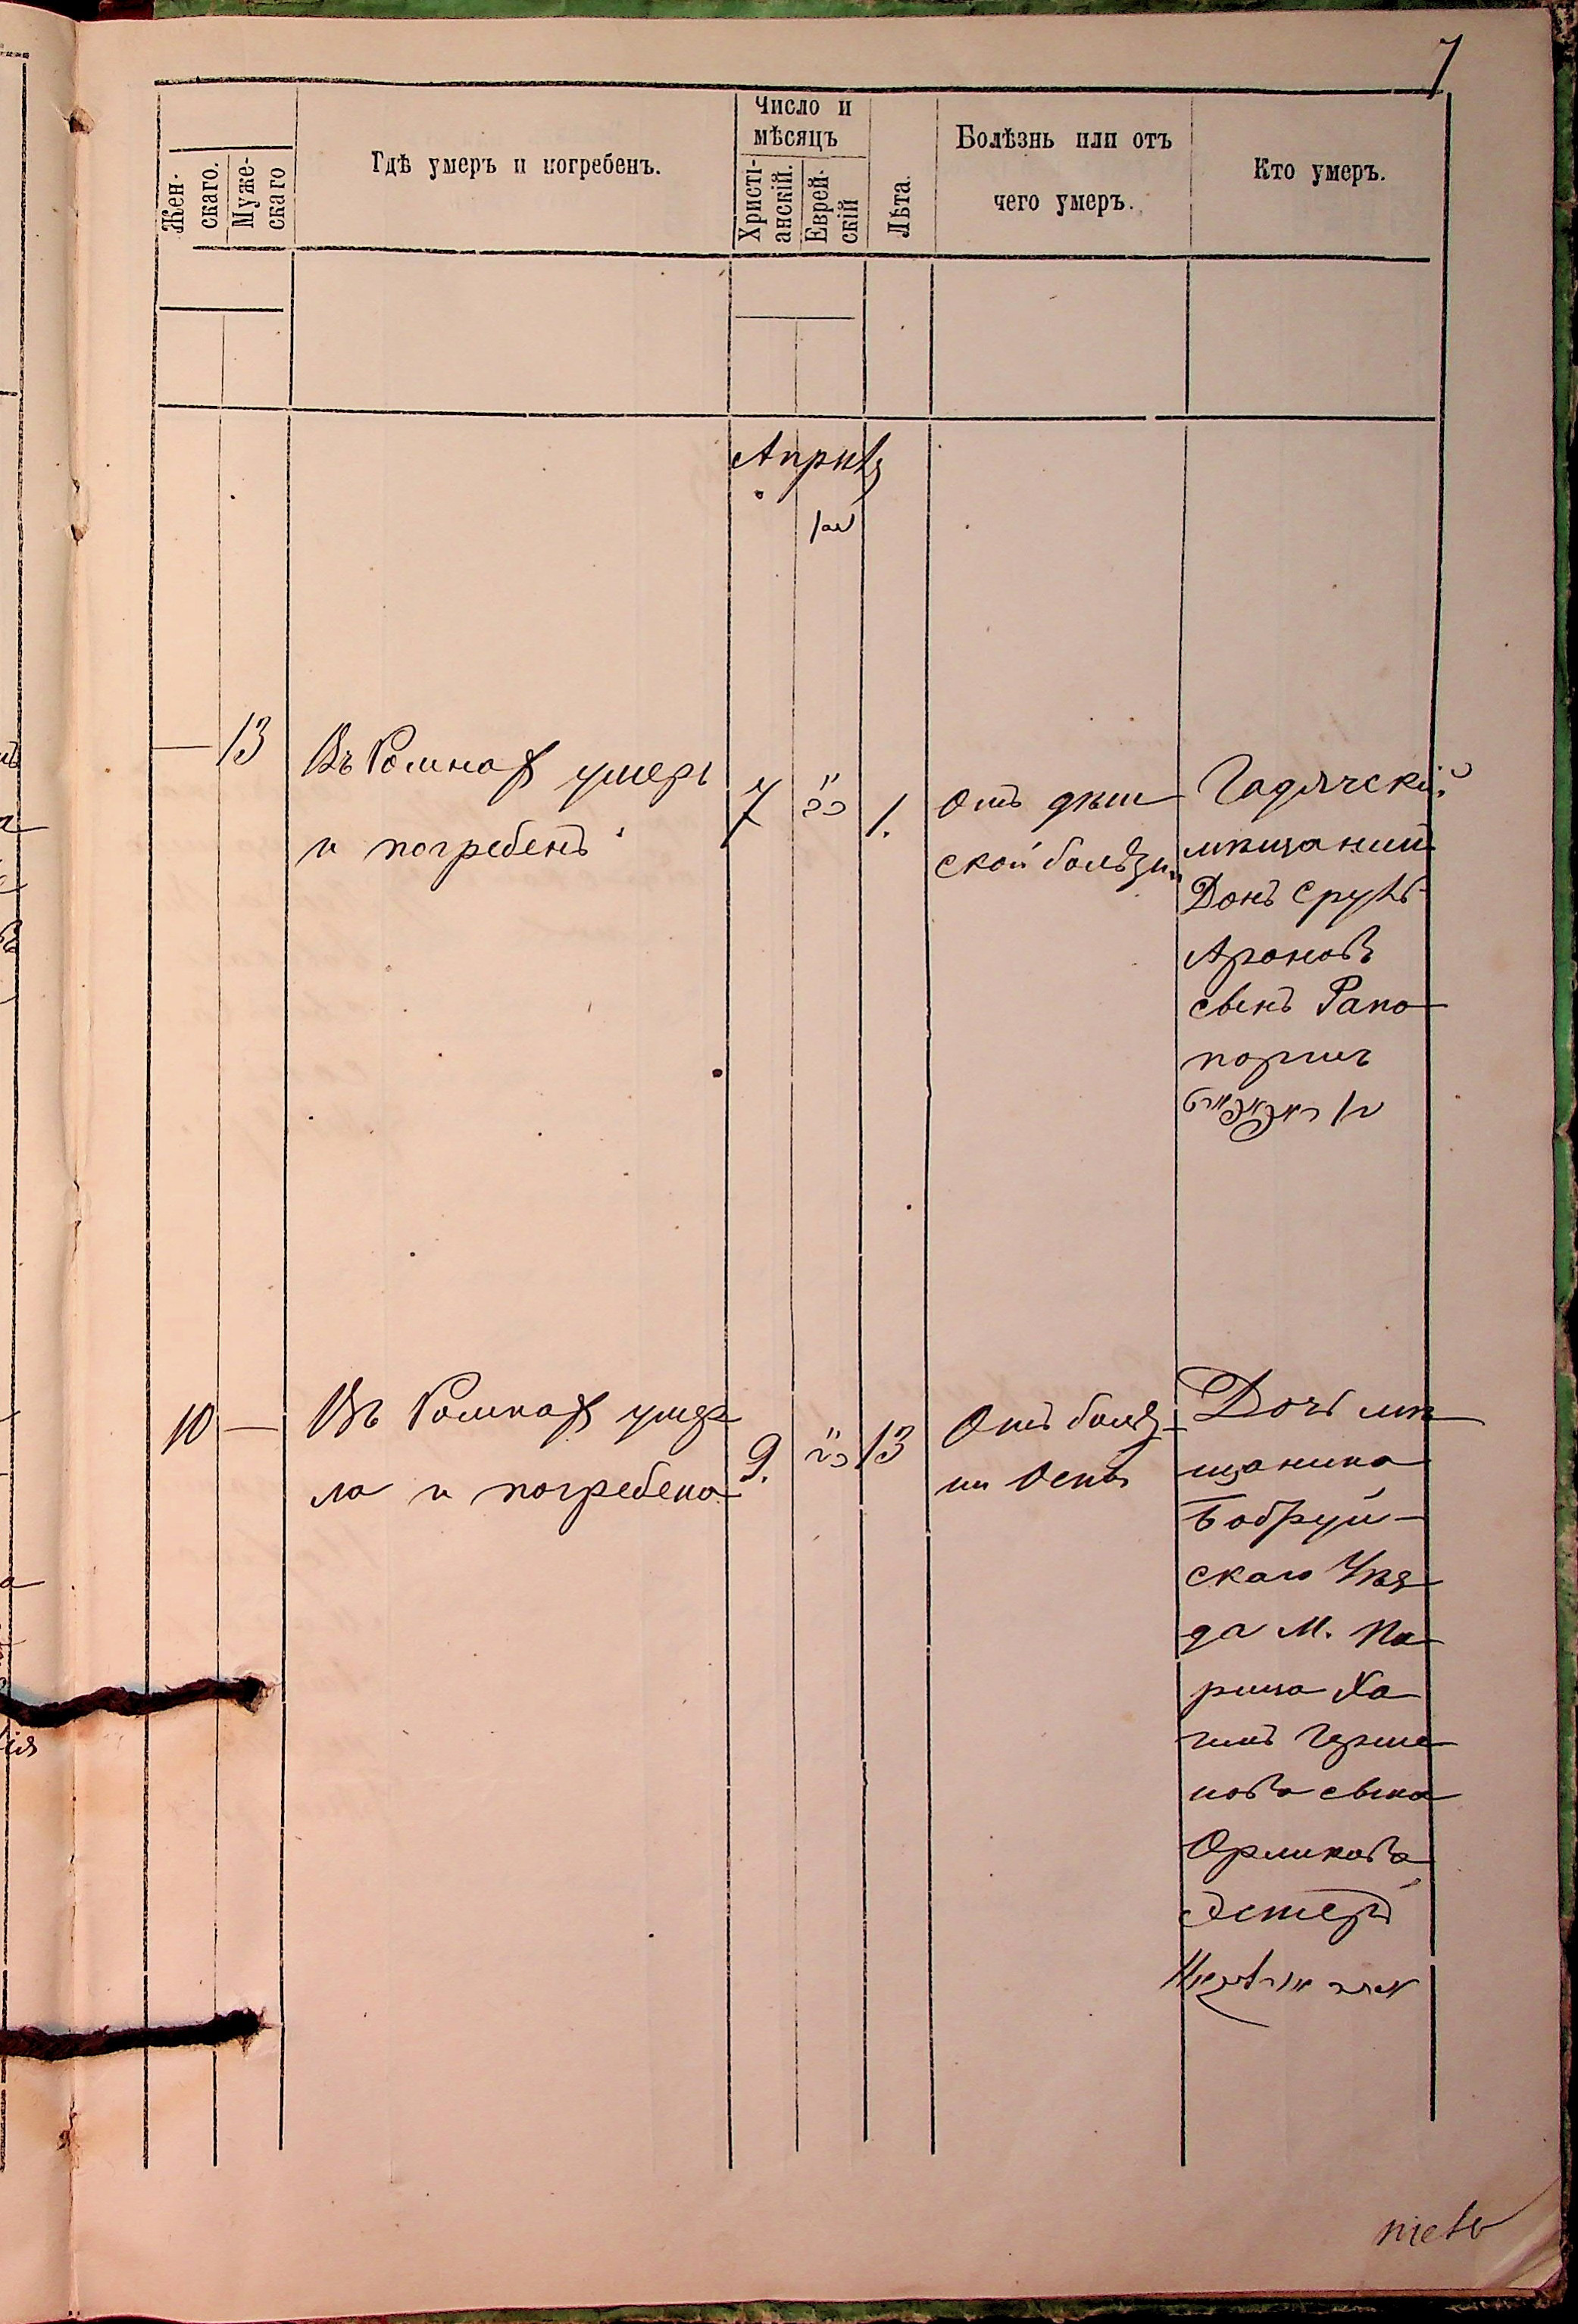 7
Жен-
скаго.
Муже-
скаго
Гдѣ умеръ и погребенъ.
Число и
мѣсяцъ
Христі-
анскій.
Еврей-
скій
Лѣта.
Болѣзнь или отъ
чего умеръ.
Кто умеръ.
Апрѣль
— 13
Въ Ромнахъ умеръ
и погребенъ
7
1.
Отъ дѣт
ской болѣзни
Гадячскій
мѣщанинъ
Донъ Сруль
Ароновъ
сынъ Рапо
портъ
10 —
Въ Ромнахъ умер
ла и погребена
9.
13
Отъ болѣз
ни Оспы
Дочь мѣ
щанина
Бобруй-
скаго Уѣз
да М. Па
рича Ха
имъ Герше
нова сына
Орликова
Эстеръ